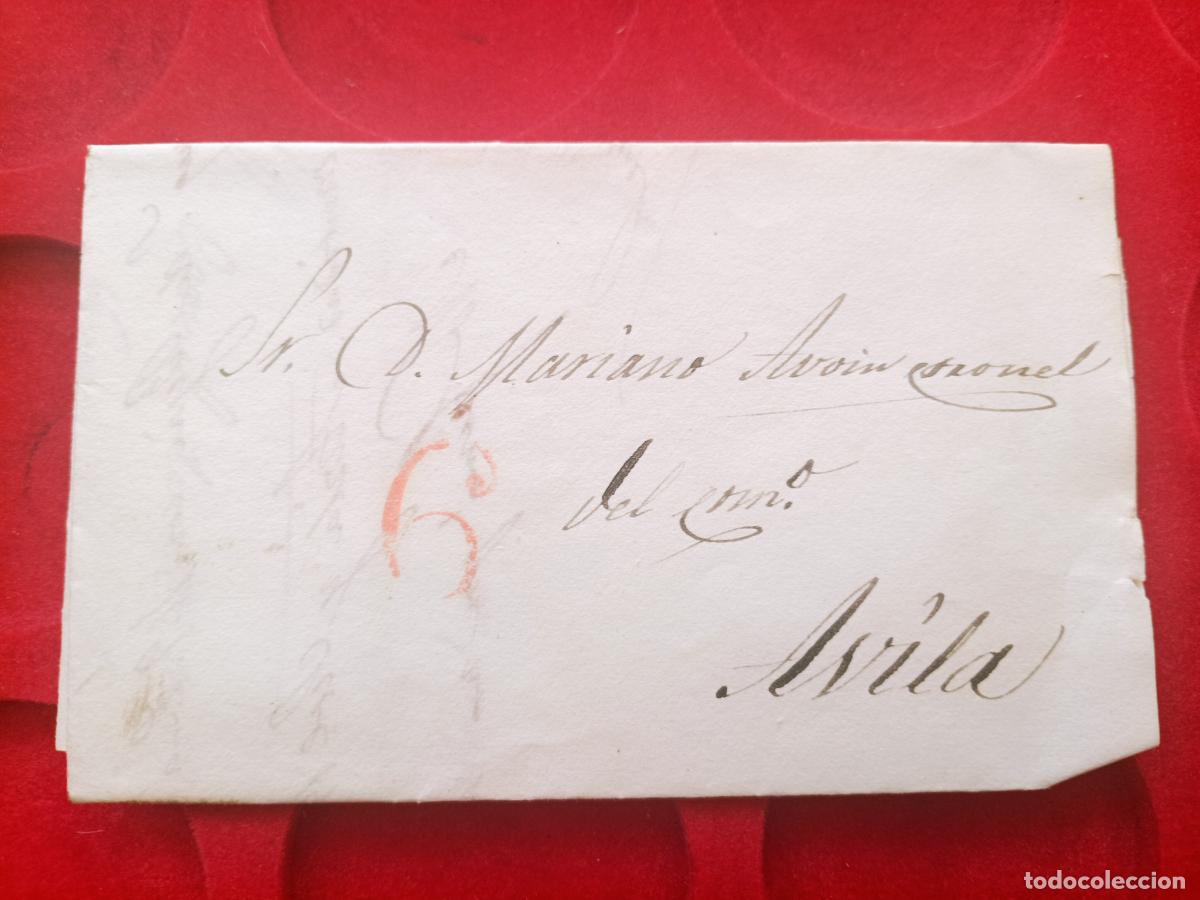 Sr. D. Mariano Avoin coronel
6
del com.º
Avila
todocoleccion